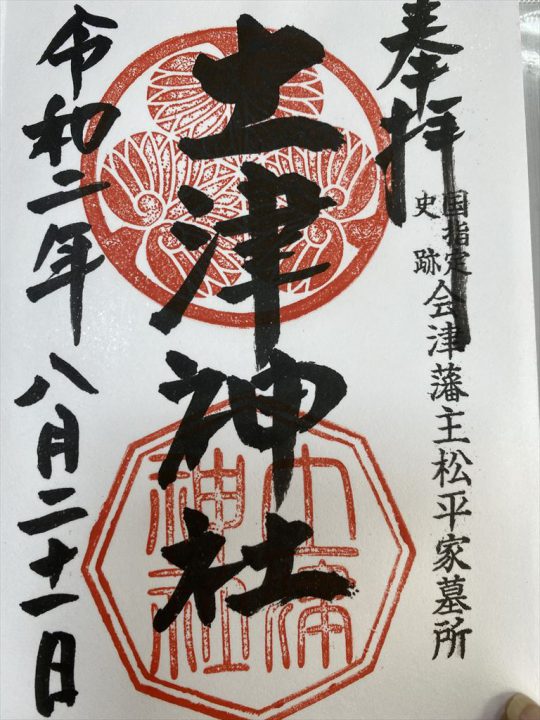 奉拝
国指定
史跡
会津藩主松平家墓所
土津神社
土津
神社
令和二年八月二十一日